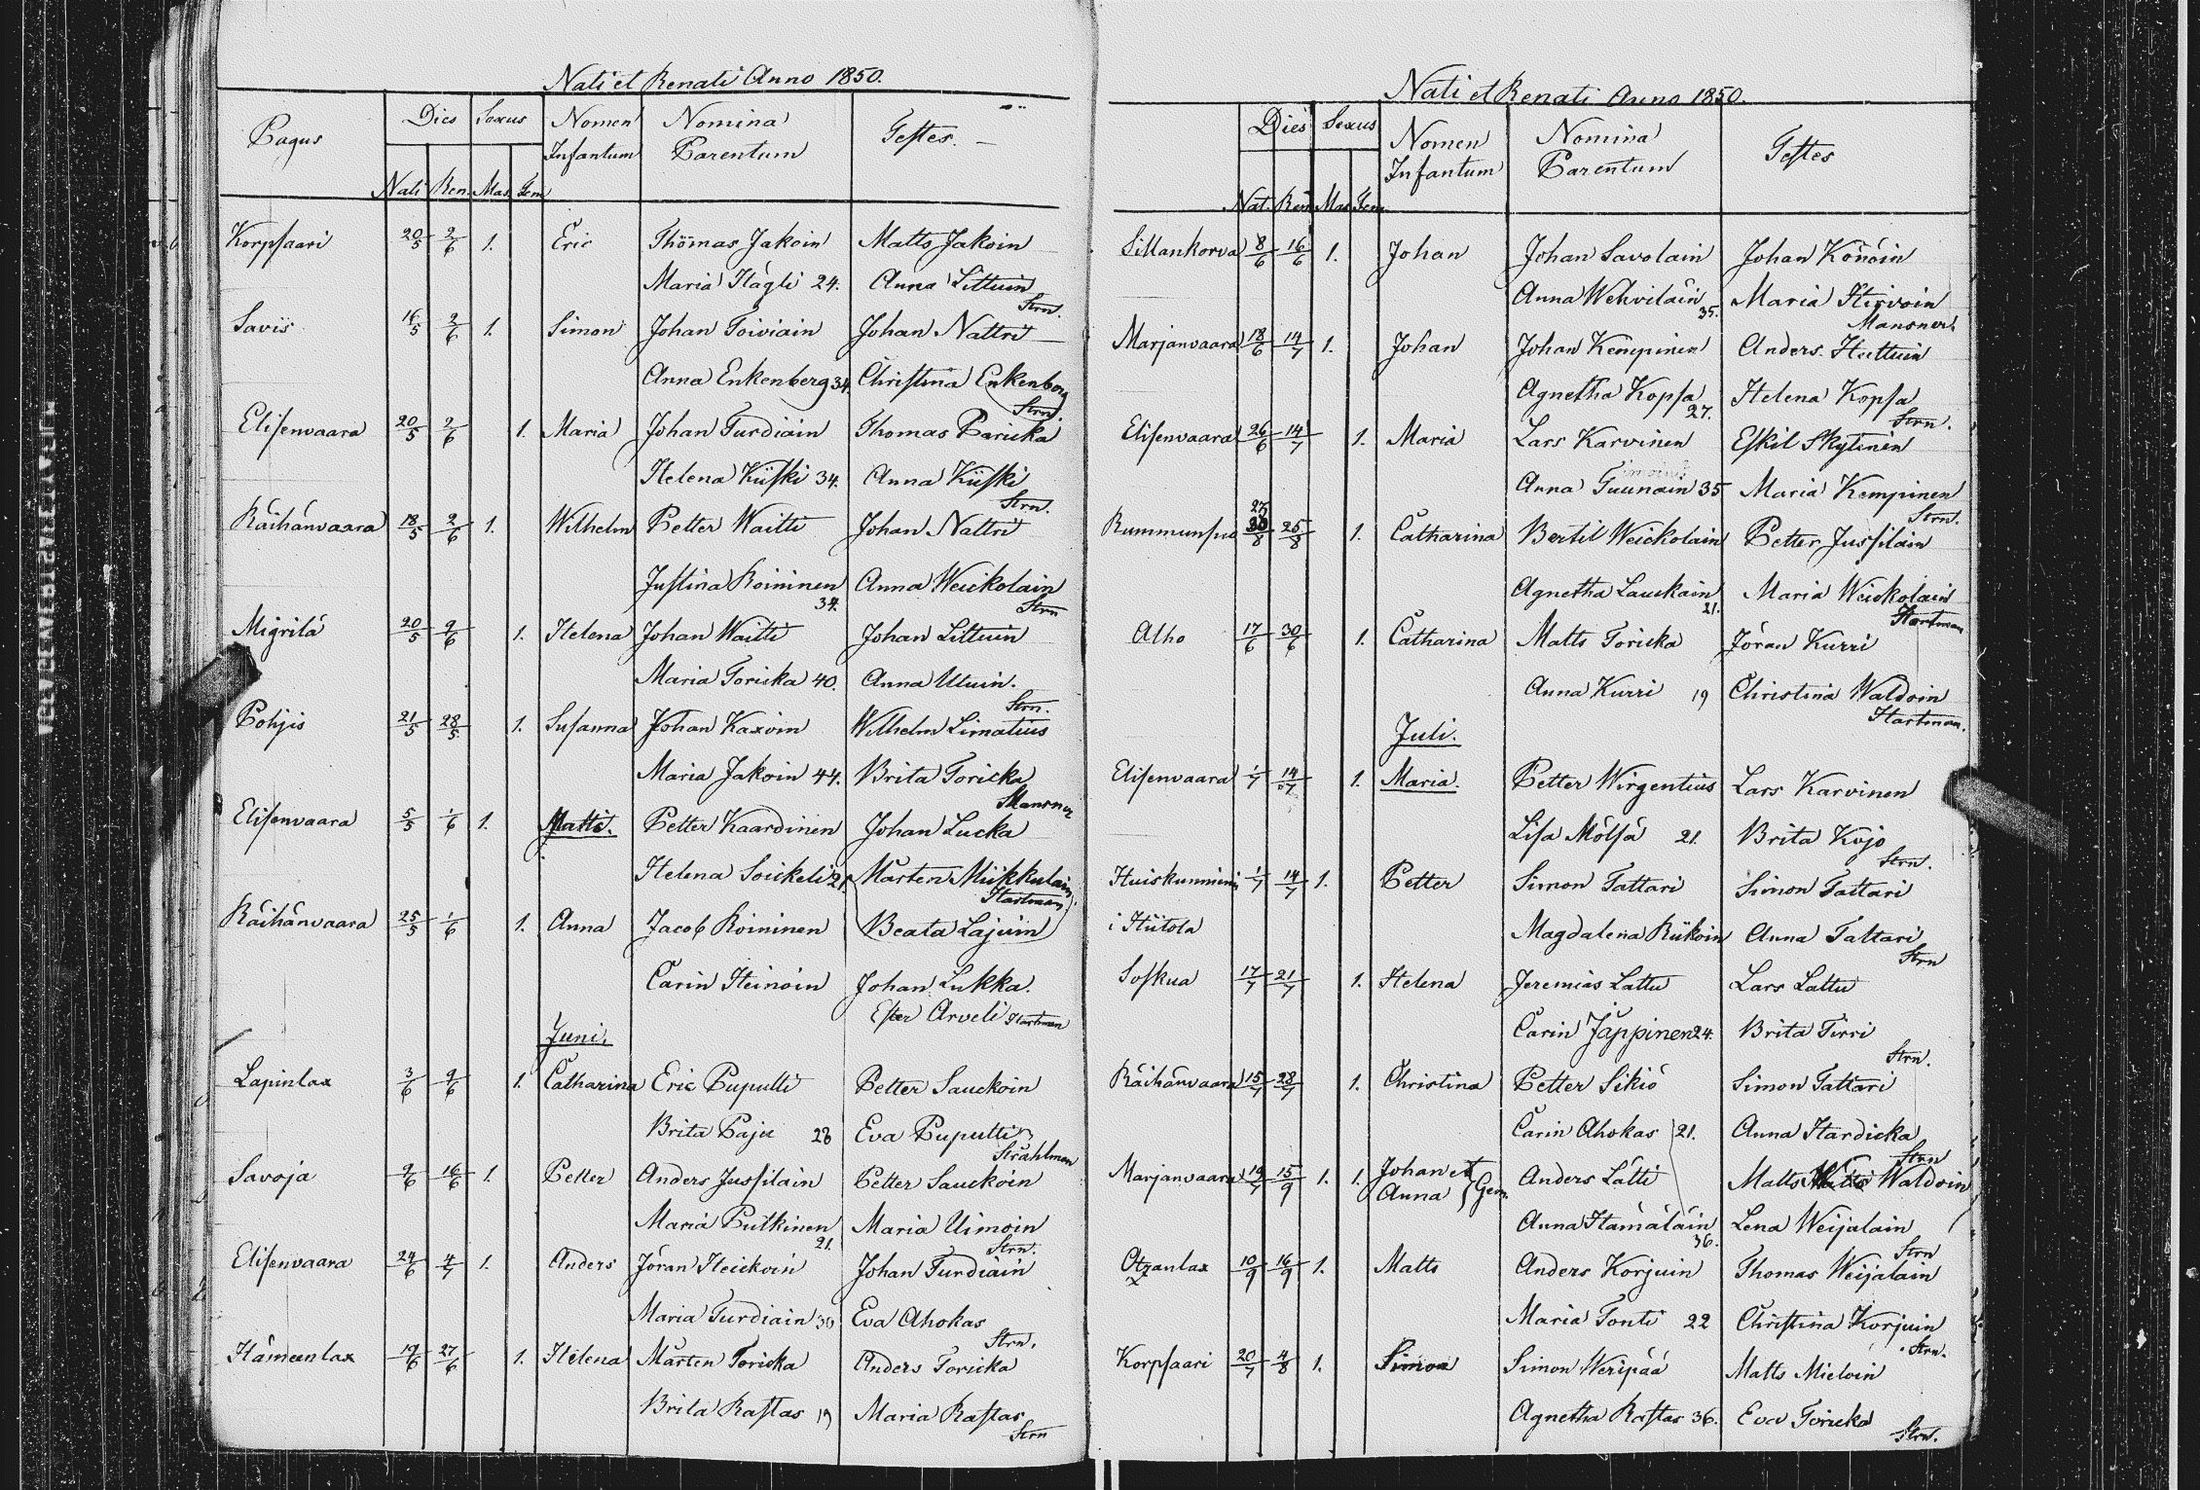 Nati et Renati Anno 1850.
Pagus Dies Sexus Nomen Infantum Nomina Parentum Testes.
Nati Ren. Mas. Fem.
Korpsaari 20/5 2/6 1. Eric Thomas Jakoin Matts Jakoin
Maria Hägli 24. Anna Littuin
Strn.
Saviis 16/5 2/6 1. Simon Johan Toiviain Johan Nattri
Anna Enkenberg 34. Christina Enkenberg
Strn.
Elisenvaara 20/5 2/6 1. Maria Johan Turdiain Thomas Paricka
Helena Kiiski 34. Anna Kiiski
Strn.
Räihänvaara 18/5 2/6 1. Wilhelm Petter Waitti Johan Nattri
Justina Roininen 34. Anna Weickolain
Strn
Migrilä 20/5 9/6 1. Helena Johan Waitti Johan Littuin
Maria Toricka 40. Anna Utuin.
Strn.
Pohjis 21/5 28/5 1. Susanna Johan Kaxoin Wilhelm Limatius
Maria Jakoin 44. Brita Toricka
Mansner
Elisenvaara 5/5 1/6 1. Matts. Petter Kaardinen Johan Lucka
Helena Soickeli 21 Mårten Miikkulain
Hartman.
Räihänvaara 25/5 1/6 1. Anna Jacob Roininen Beata Lajuin
Carin Heinoin Johan Lukka.
Ester Arveli Hartman
Juni.
Lapinlax 3/6 9/6 1. Catharina Eric Puputti Petter Sauckoin
Brita Paju 28 Eva Puputti
Stråhlman
Savoja 9/6 16/6 1. Petter Anders Jussilain Petter Sauckoin
Maria Putkinen 21. Maria Uimoin
Strn.
Elisenvaara 24/6 4/7 1. Anders Jöran Heickoin Johan Turdiain
Maria Turdiain 30 Eva Ahokas
Strn.
Hämeenlax 19/6 27/6 1. Helena Mårten Toricka Anders Toricka
Brita Rastas 19 Maria Rastas
Strn
Nati et Renati Anno 1850.
Dies Sexus Nomen Infantum Nomina Parentum Testes
Nat. Ren Mas Fem
Sillankorva 8/6 16/6 1. Johan Johan Savolain Johan Könöin
Anna Wehviläin 35. Maria Hirvoin
Mansner.
Marjanvaara 18/6 14/7 1. Johan Johan Kempinen Anders Huttuin
Agnetha Kopsa 27. Helena Kopsa
Strn.
Elisenvaara 26/6 14/7 1. Maria Lars Karvinen Eskil Skytinen
Anna Tuunain 35 Maria Kempinen
Strn.
Rummunsuo 25/8 1. Catharina Bertil Weickolain Petter Jussilain
Agnetha Lauckain 21. Maria Weickolain
Hartman
Alho 17/6 30/6 1. Catharina Matts Toricka Jöran Kurri
Anna Kurri 19 Christina Waldoin
Hartman.
Juli.
Elisenvaara 1/7 14/7 1. Maria. Petter Wirgentius Lars Karvinen
Lisa Mölsä 21. Brita Kojo
Strn.
Huiskunniemi 1/7 14/7 1. Petter Simon Tattari Simon Tattari
i Hiitola Magdalena Riikoin Anna Tattari
Strn
Soskua 17/7 21/7 1. Helena Jeremias Lattu Lars Lattu
Carin Jäppinen 24. Brita Tirri
Strn.
Räihänvaara 15/7 28/7 1. Christina Petter Sikiö Simon Tattari
Carin Ahokas 21. Anna Hardicka
Strn
Marjanvaara 19/7 15/9 1. 1. Johan et Anna Gem. Anders Lätti Matts Waldoin
Anna Hämäläin 36. Lena Weijalain
Strn
Otzanlax 10/9 16/9 1. Matts Anders Korjuin Thomas Weijalain
Maria Tonti 22 Christina Korjuin
Strn.
Korpsaari 20/7 4/8 1. Simon Simon Weripää Matts Mieloin
Agnetha Rastas 36. Eva Toricka
Strn.